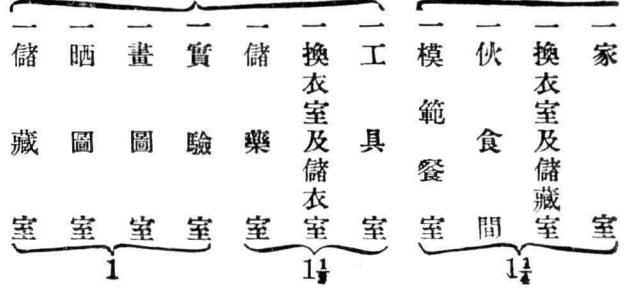 一家室
一換衣室及儲藏室
一伙食間
一模範餐室
1¼
一工具室
一換衣室及儲衣室
一儲藥室
1½
一實驗室
一畫圖室
一晒圖室
一儲藏室
1